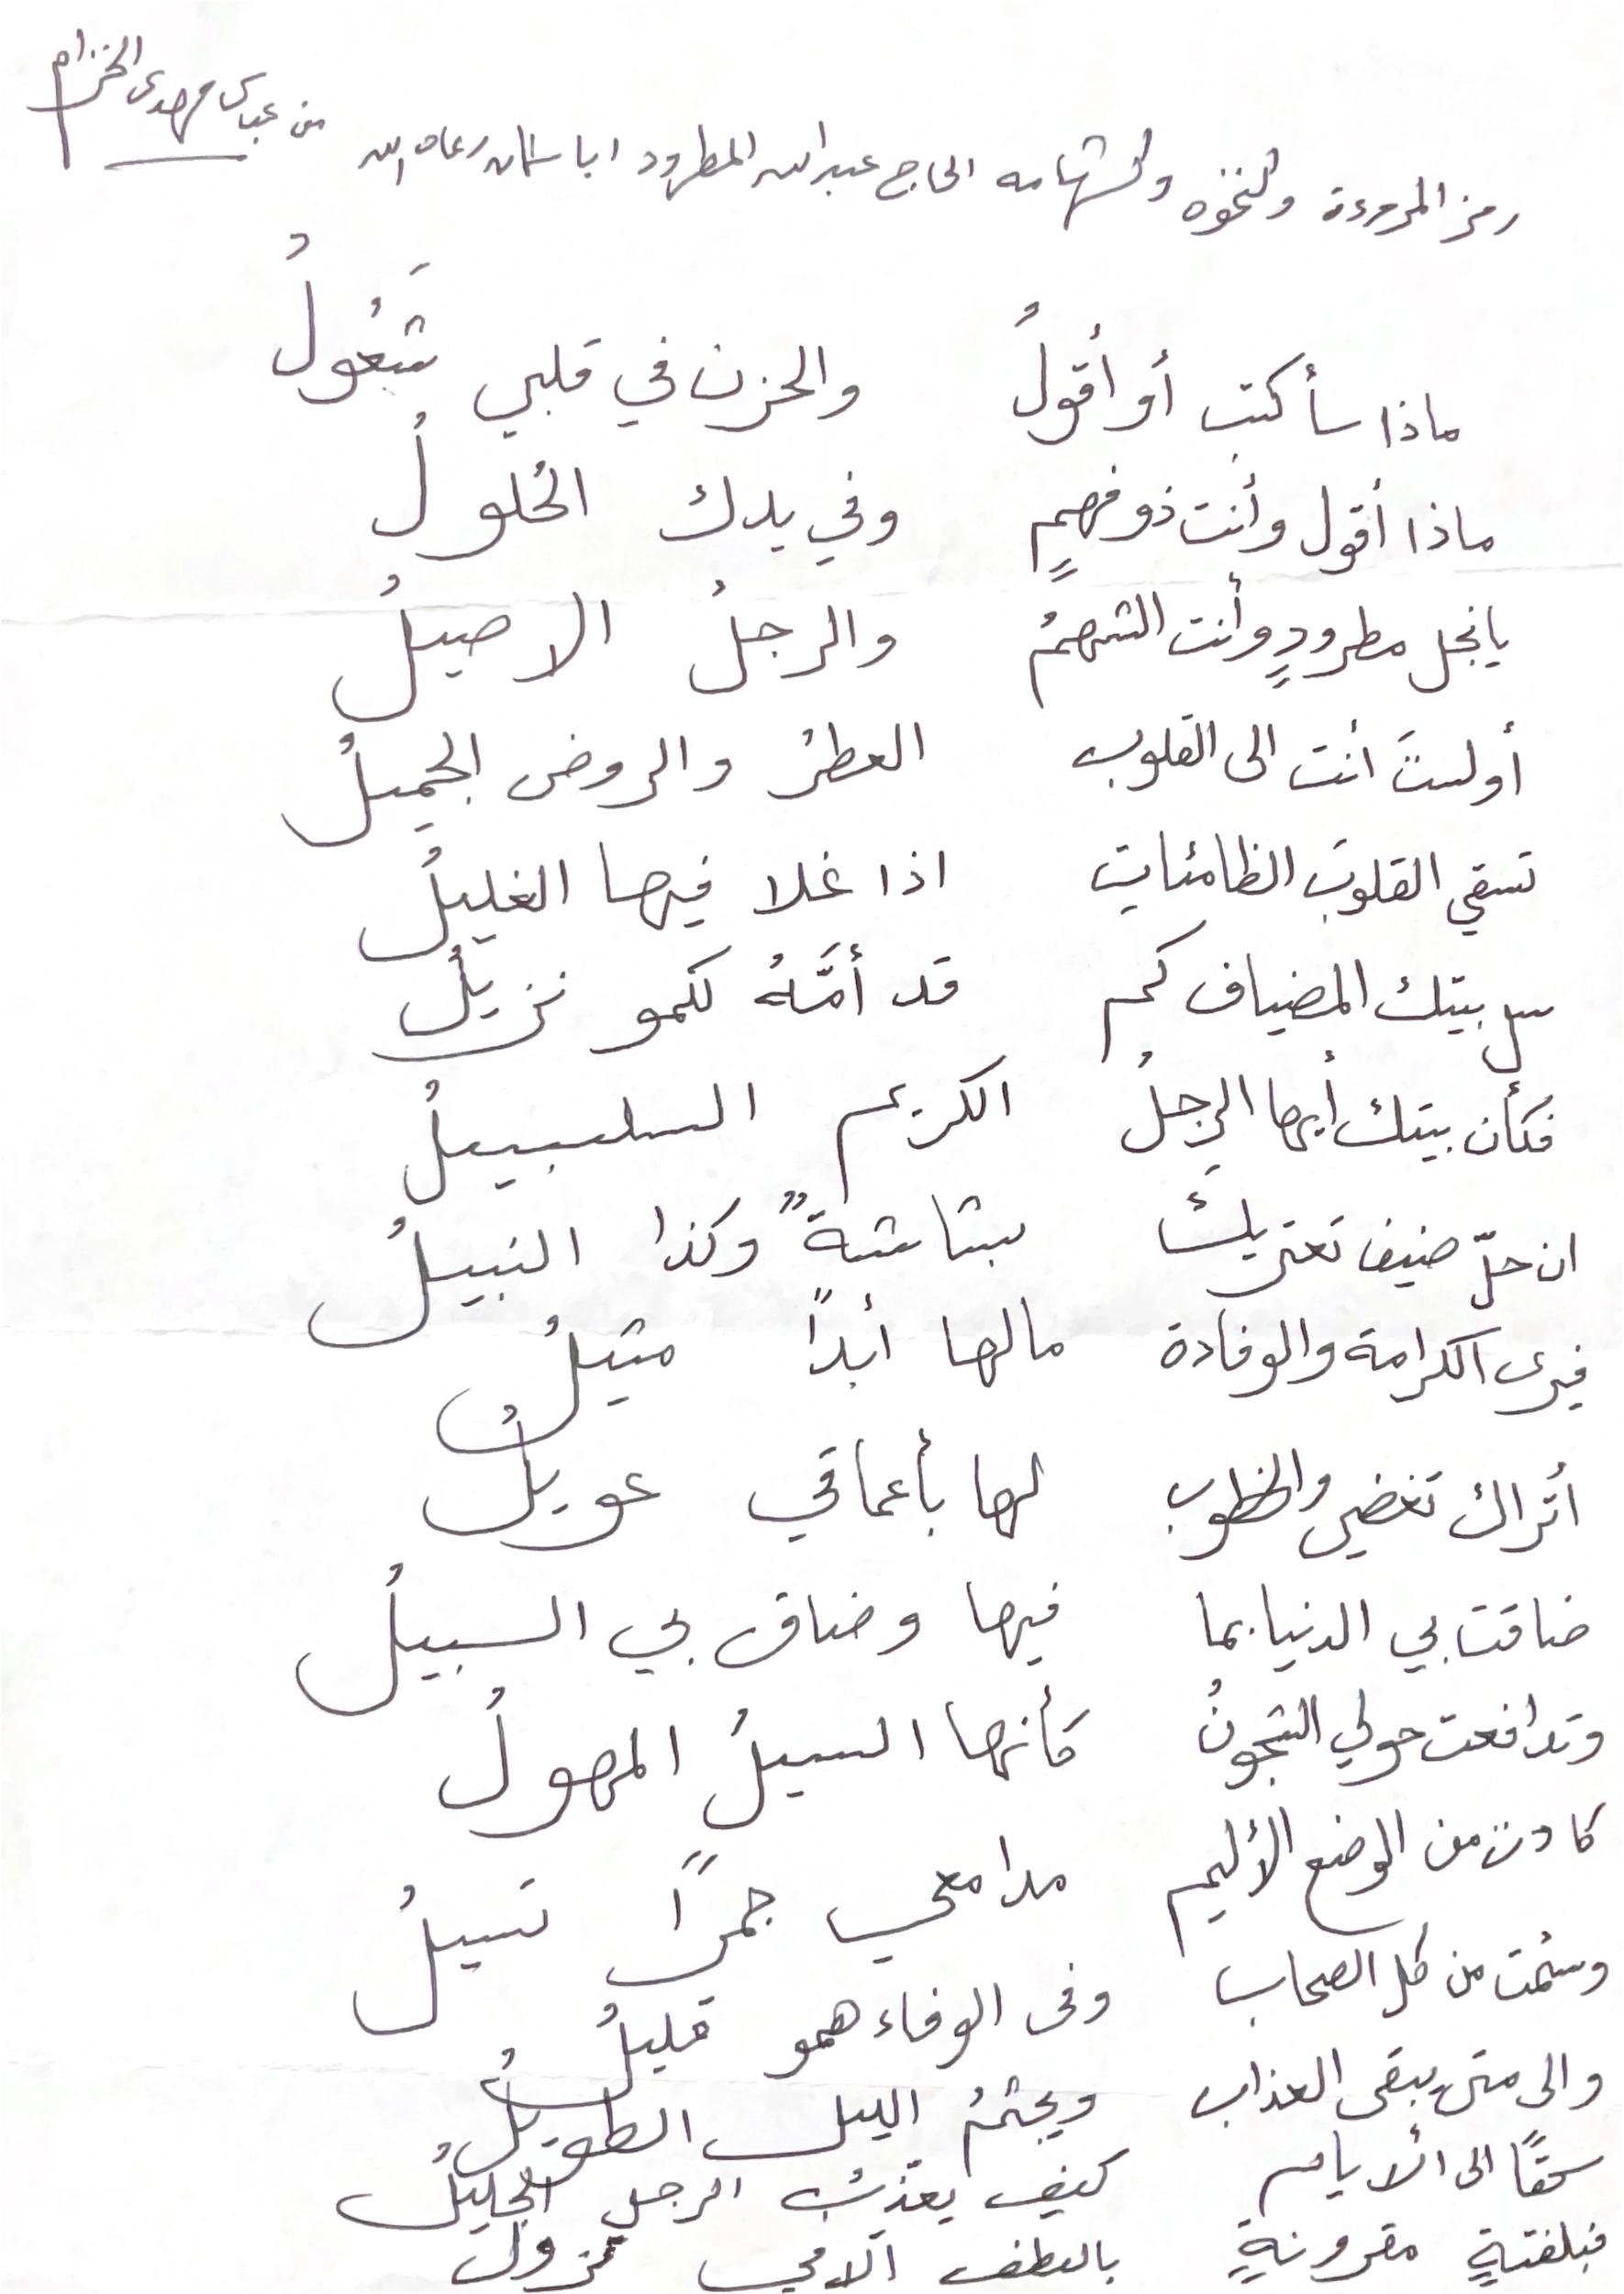 من عباس مهدي الخزام
رمز المروءة والنخوه والشهامه الحاج عبدالله المطرود ابا سلمان رعاه الله
ماذا سأكتب أو أقولُ والحزن في قلبي شَعُولُ
ماذا أقول وأنت ذو فهمٍ وفي يدك الحُلولُ
يا نجل مطرودٍ وأنت الشهمُ والرجلُ الاصيلُ
أولستَ أنت الى القلوب العطرُ والروض الجميلُ
تسقي القلوبَ الظامئاتِ اذا غلا فيها الغليلُ
سل بيتك المضياف كم قد أمَّهُ لكمو نزيلُ
فكأن بيتك أيها الرجلُ الكريم السلسبيلُ
ان حلّ ضيف تعتريكَ بشاشةٌ وكذا النبيلُ
فيرى الكرامة والوفادة مالها أبدًا مثيلُ
أتُراك تغضي والخطوب لها بأعماقي عويلُ
ضاقت بي الدنيا بما فيها وضاق بي السبيلُ
وتدافعت حولي الشجونُ كأنها السيلُ المهولُ
كادت من الوضع الأليم مدامعي جمرًا تسيلُ
وسئمت من كل الصحاب وفى الوفاء همو قليلُ
والى متى يبقى العذاب ويجثمُ اليل الطويلُ
سحقًا الى الأيام كيف يعذّبُ الرجل الجليلُ
فبلفتةٍ مقرونةٍ بالعطف آلامي تزولُ